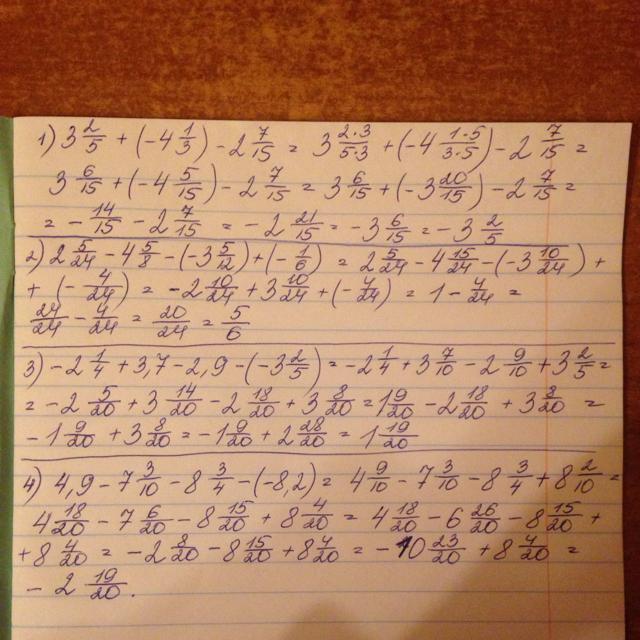 1) 3 2/5 + (-4 1/3) - 2 7/15 = 3 2·3/5·3 + (-4 1·5/3·5) - 2 7/15 =
3 6/15 + (-4 5/15) - 2 7/15 = 3 6/15 + (-3 20/15) - 2 7/15 =
= - 14/15 - 2 7/15 = - 2 21/15 = - 3 6/15 = - 3 2/5
2) 2 5/24 - 4 5/8 - (-3 5/12) + (- 1/6) = 2 5/24 - 4 15/24 - (-3 10/24) +
+ (- 4/24) = - 2 10/24 + 3 10/24 + (- 4/24) = 1 - 4/24 =
24/24 - 4/24 = 20/24 = 5/6
3) - 2 1/4 + 3,7 - 2,9 - (-3 2/5) = - 2 1/4 + 3 7/10 - 2 9/10 + 3 2/5 =
= - 2 5/20 + 3 14/20 - 2 18/20 + 3 8/20 = 1 9/20 - 2 18/20 + 3 8/20 =
- 1 9/20 + 3 8/20 = - 1 9/20 + 2 28/20 = 1 19/20
4) 4,9 - 7 3/10 - 8 3/4 - (-8,2) = 4 9/10 - 7 3/10 - 8 3/4 + 8 2/10 =
4 18/20 - 7 6/20 - 8 15/20 + 8 4/20 = 4 18/20 - 6 26/20 - 8 15/20 +
+ 8 4/20 = - 2 8/20 - 8 15/20 + 8 4/20 = - 10 23/20 + 8 4/20 =
- 2 19/20.